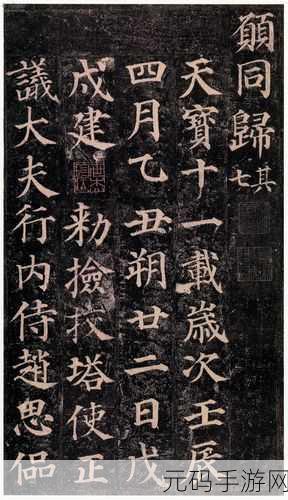 願同歸其七
天寶十一載歲次壬辰
四月乙丑朔廿二日戊
戌建 勑撿挍塔使正
議大夫行内侍趙思偘
元码手游网